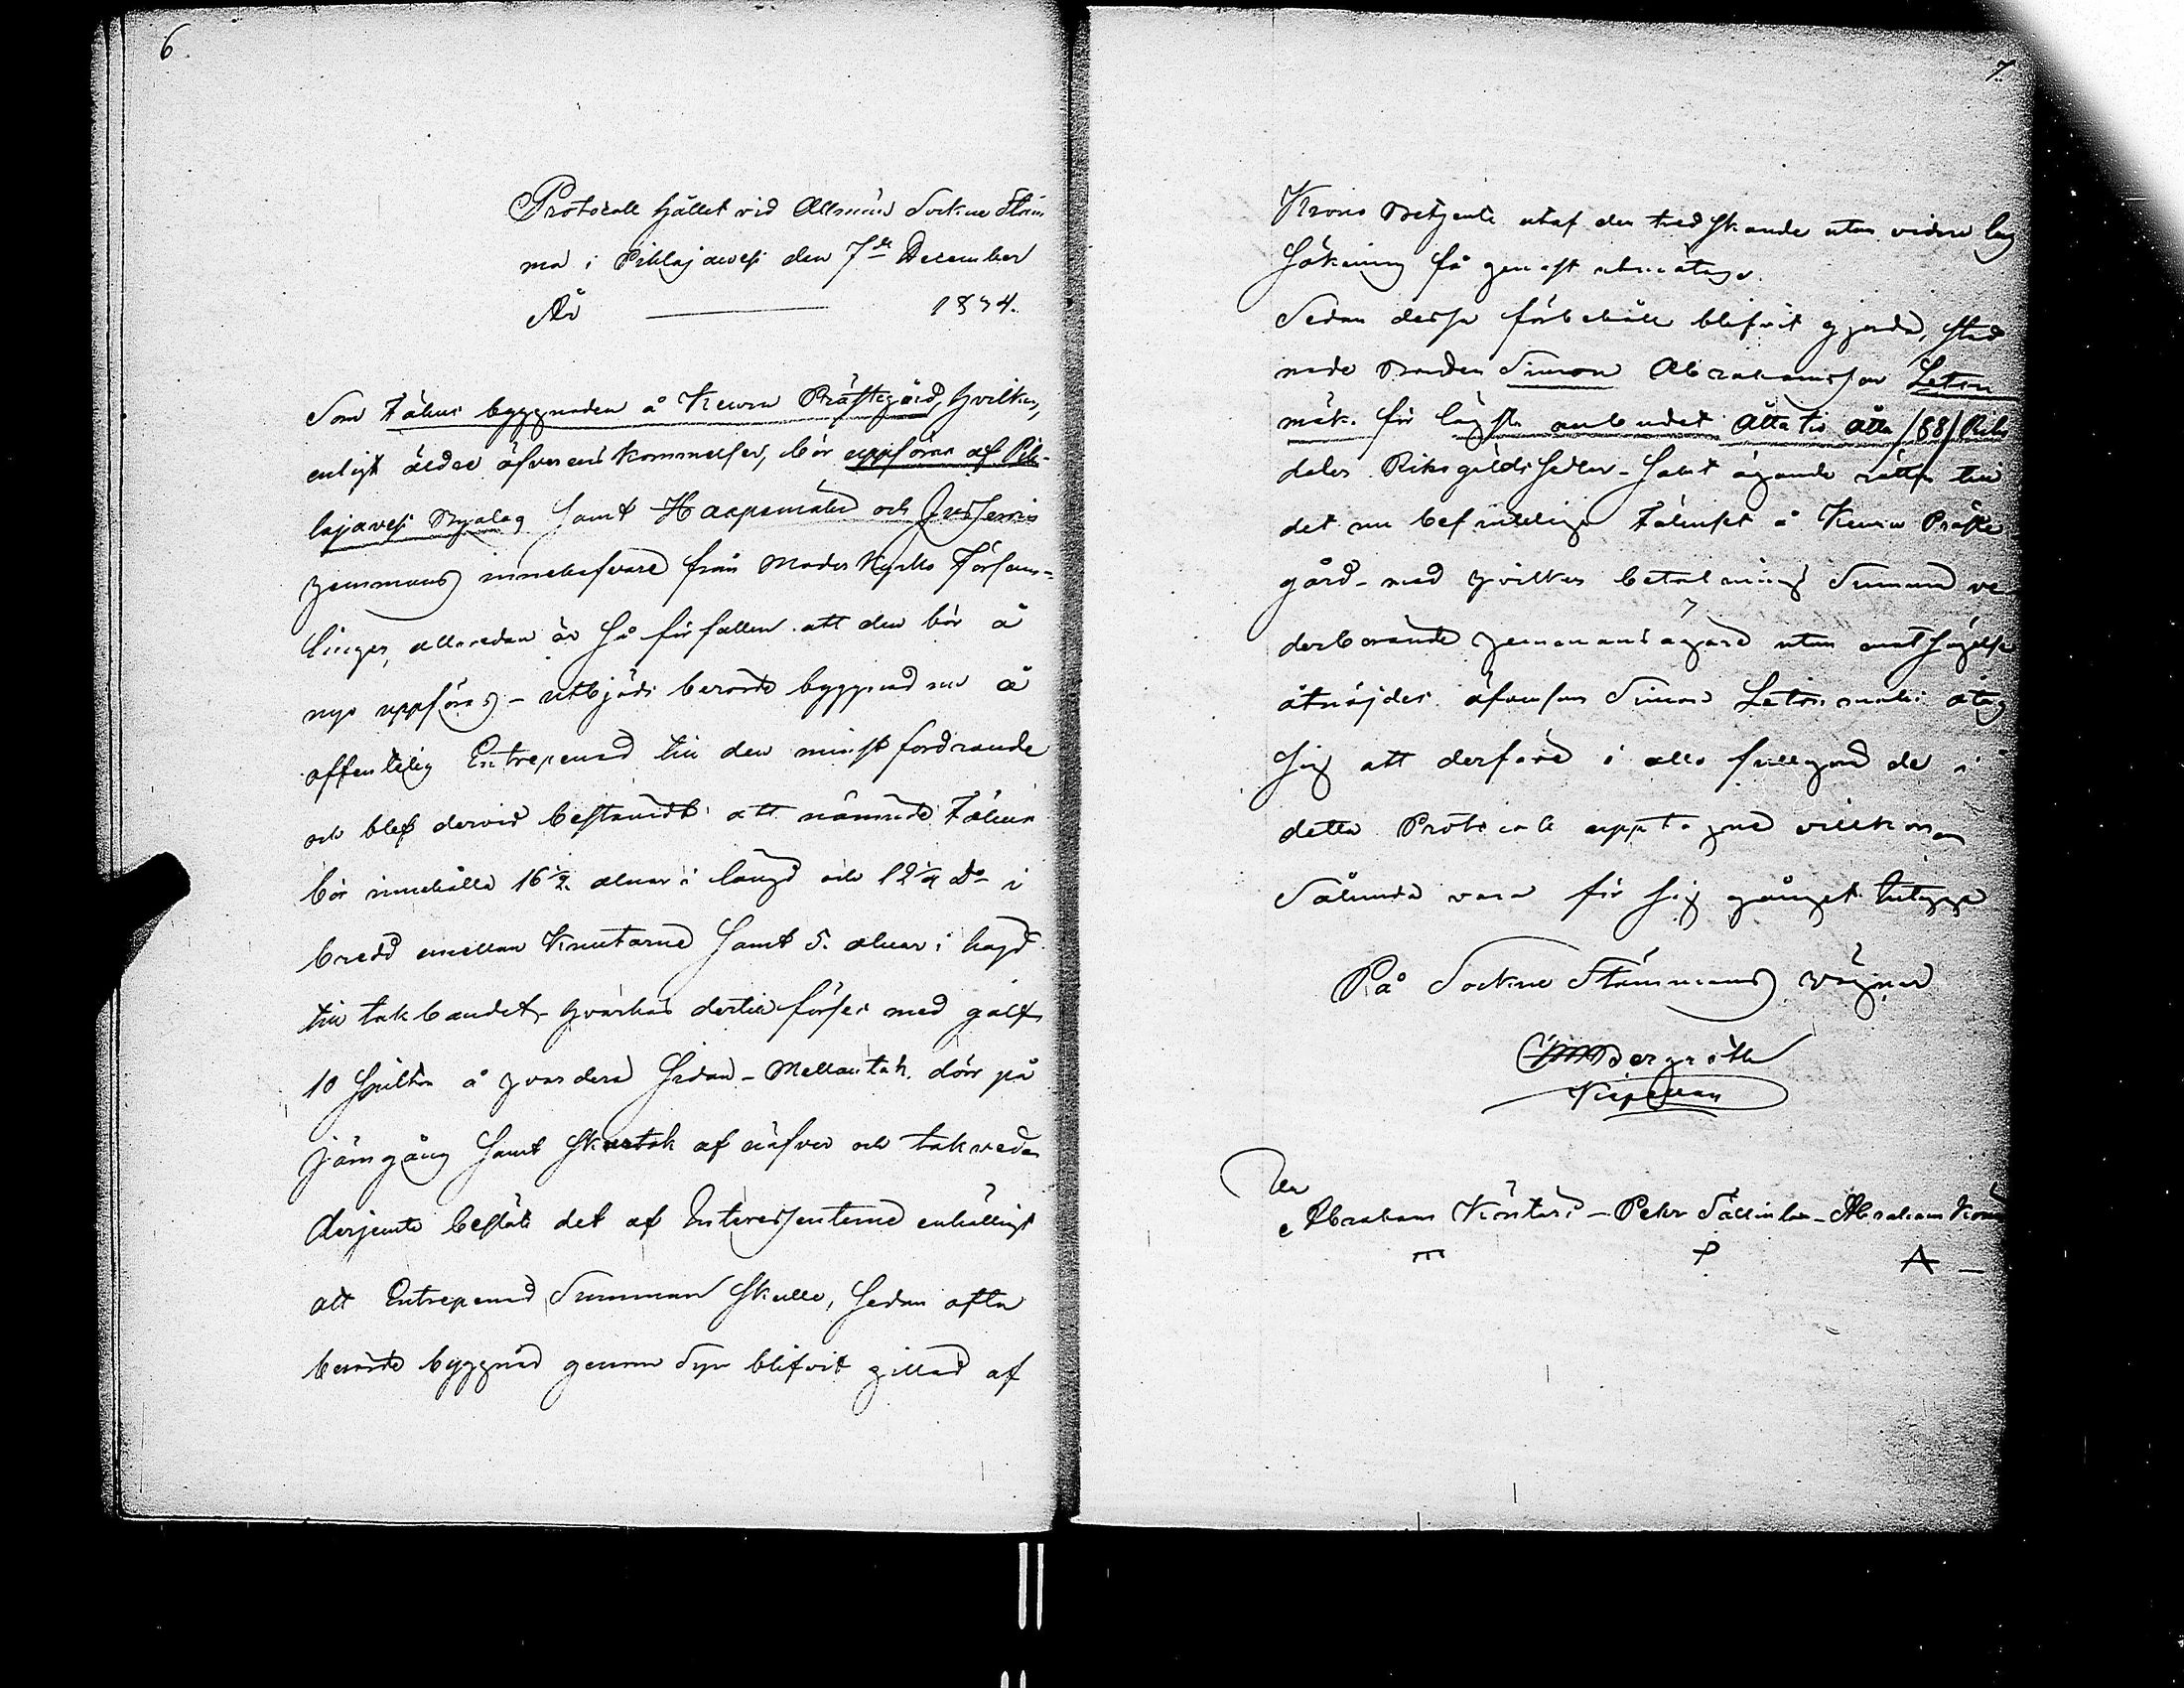 6.
Protocoll hållet vid Allmän Sockne Stäm
ma i Pihlajavesi den 7de December
År 1834.
Som Fähus byggnaden å Keuru Prästegård, hvilken,
enligt äldre öfverens kommelser, bör uppföras af Pih-
lajavesi Byalag samt Haapamäki och
hemmans innehafvare från Moder Kyrko Försam-
lingen, alloredan är så förfallen att den bör å
nyo uppföras - utbjöds berörde byggnad nu å
offentelig Entrepenad till den minst fordrande
och blef dervid bestämdt att nämnde Fähus
bör innehålla 16 1/2 alnar i längd och 12 1/4 Do i
bredd emellan Knutarne samt 5. alnar i högd
till takbandet, hvarhos dertill förses med golf
10 Spiltor å hvardera Sidan - Mellantak, dörr på
jerngång samt Skurtak af näfver och takveder
derjemte beslöts det af Interessenterne enhälligt
att Entrepenad Summan skulle, sedan ofta
berörde byggnad genom Syn blifvit gillad af
7
Krono Betjente utaf den tredskande utan vidare lag
Sökning få genast utmätas.
Sedan dessa förbehåll blifvit gjorda, stad
nade Bonden Simon Abrahamsson Leton
mäk. för lägsta anbudet Åttatio åtta /88/ Riks
daler Riksgälds Sedlar - samt ägande rätten till
det nu befintliga Fähuset å Keuru Präste
gård - med hvilken betalnings Summa ve
derborande hemmansägare utan motsägelse
åtnöjdes äfvensom Simon Letonmäki åtog
sig att derföre i allo fullgöra de i
detta Protocoll upptagne villkoren
Sålunda vara för sig gånget betyga
På Sockne Stämmans vägnar
Bergroth
Capellan
Abraham Köntäri - Petter Sällinen - Abraham
m P A